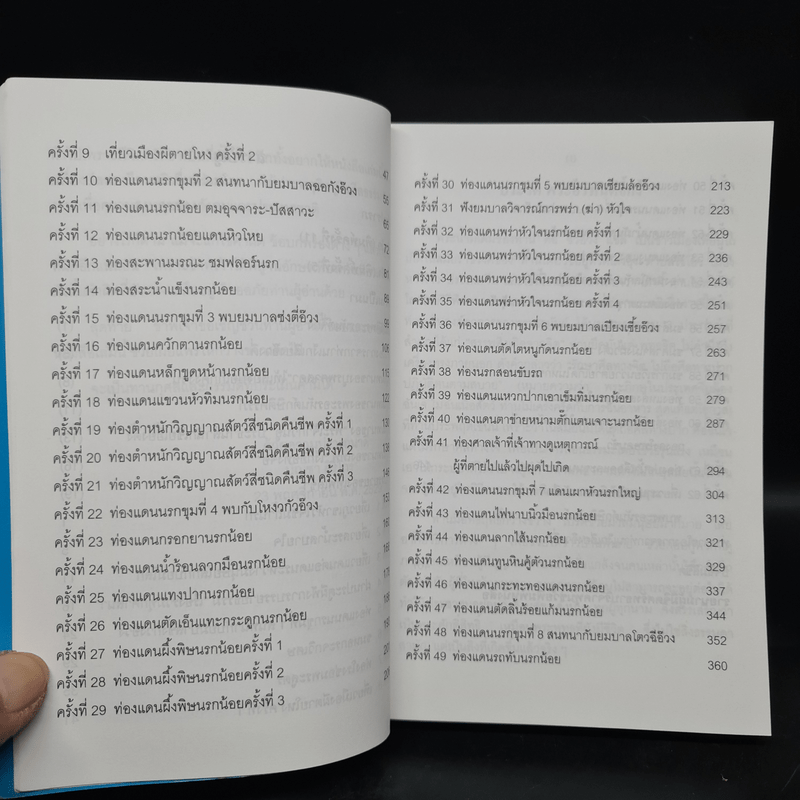 ครั้งที่ 9 เที่ยวเมืองผีตายโหง ครั้งที่ 2
ครั้งที่ 10 ท่องแดนนรกขุมที่ 2 สนทนากับยมบาลฉอกังอ๊วง 47
ครั้งที่ 11 ท่องแดนนรกน้อย ตมอุจจาระ-ปัสสาวะ 56
ครั้งที่ 12 ท่องแดนนรกน้อยแดนหิวโหย
ครั้งที่ 13 ท่องสะพานมรณะ ชมฟลอร์นรก 72
ครั้งที่ 14 ท่องสระน้ำแข็งนรกน้อย 81
ครั้งที่ 15 ท่องแดนนรกขุมที่ 3 พบยมบาลซ่งตี่อ๊วง
ครั้งที่ 16 ท่องแดนควักตานรกน้อย
ครั้งที่ 17 ท่องแดนหลักขูดหน้านรกน้อย
ครั้งที่ 18 ท่องแดนแขวนหัวทิ่มนรกน้อย
ครั้งที่ 19 ท่องตำหนักวิญญาณสัตว์สี่ชนิดคืนชีพ ครั้งที่ 1
ครั้งที่ 20 ท่องตำหนักวิญญาณสัตว์สี่ชนิดคืนชีพ ครั้งที่ 2
ครั้งที่ 21 ท่องตำหนักวิญญาณสัตว์สี่ชนิดคืนชีพ ครั้งที่ 3
ครั้งที่ 22 ท่องแดนนรกขุมที่ 4 พบกับโหงวกัวอ๊วง
ครั้งที่ 23 ท่องแดนกรอกยานรกน้อย
ครั้งที่ 24 ท่องแดนน้ำร้อนลวกมือนรกน้อย
ครั้งที่ 25 ท่องแดนแทงปากนรกน้อย
ครั้งที่ 26 ท่องแดนตัดเอ็นแทะกระดูกนรกน้อย
ครั้งที่ 27 ท่องแดนผึ้งพิษนรกน้อยครั้งที่ 1
ครั้งที่ 28 ท่องแดนผึ้งพิษนรกน้อยครั้งที่ 2
ครั้งที่ 29 ท่องแดนผึ้งพิษนรกน้อยครั้งที่ 3
ครั้งที่ 30 ท่องแดนนรกขุมที่ 5 พบยมบาลเซียมล้ออ๊วง 213
ครั้งที่ 31 ฟังยมบาลวิจารณ์การพร่า (ฆ่า) หัวใจ 223
ครั้งที่ 32 ท่องแดนพร่าหัวใจนรกน้อย ครั้งที่ 1 229
ครั้งที่ 33 ท่องแดนพร่าหัวใจนรกน้อย ครั้งที่ 2 236
ครั้งที่ 34 ท่องแดนพร่าหัวใจนรกน้อย ครั้งที่ 3 243
ครั้งที่ 35 ท่องแดนพร่าหัวใจนรกน้อย ครั้งที่ 4 251
ครั้งที่ 36 ท่องแดนนรกขุมที่ 6 พบยมบาลเปียงเซี้ยอ๊วง 257
ครั้งที่ 37 ท่องแดนตัดไตหนูกัดนรกน้อย 263
ครั้งที่ 38 ท่องนรกสอนขับรถ 271
ครั้งที่ 39 ท่องแดนแหวกปากเอาเข็มทิ่มนรกน้อย 279
ครั้งที่ 40 ท่องแดนตาข่ายหนามตั๊กแตนเจาะนรกน้อย 287
ครั้งที่ 41 ท่องศาลเจ้าที่เจ้าทางดูเหตุการณ์
ผู้ที่ตายไปแล้วไปผุดไปเกิด 294
ครั้งที่ 42 ท่องแดนนรกขุมที่ 7 แดนเผาหัวนรกใหญ่ 304
ครั้งที่ 43 ท่องแดนไฟนาบนิ้วมือนรกน้อย 313
ครั้งที่ 44 ท่องแดนลากไส้นรกน้อย 321
ครั้งที่ 45 ท่องแดนทูนหินคู้ตัวนรกน้อย 329
ครั้งที่ 46 ท่องแดนกระทะทองแดงนรกน้อย 337
ครั้งที่ 47 ท่องแดนตัดลิ้นร้อยแก้มนรกน้อย 344
ครั้งที่ 48 ท่องแดนนรกขุมที่ 8 สนทนากับยมบาลโตวฉีอ๊วง 352
ครั้งที่ 49 ท่องแดนรถทับนรกน้อย 360